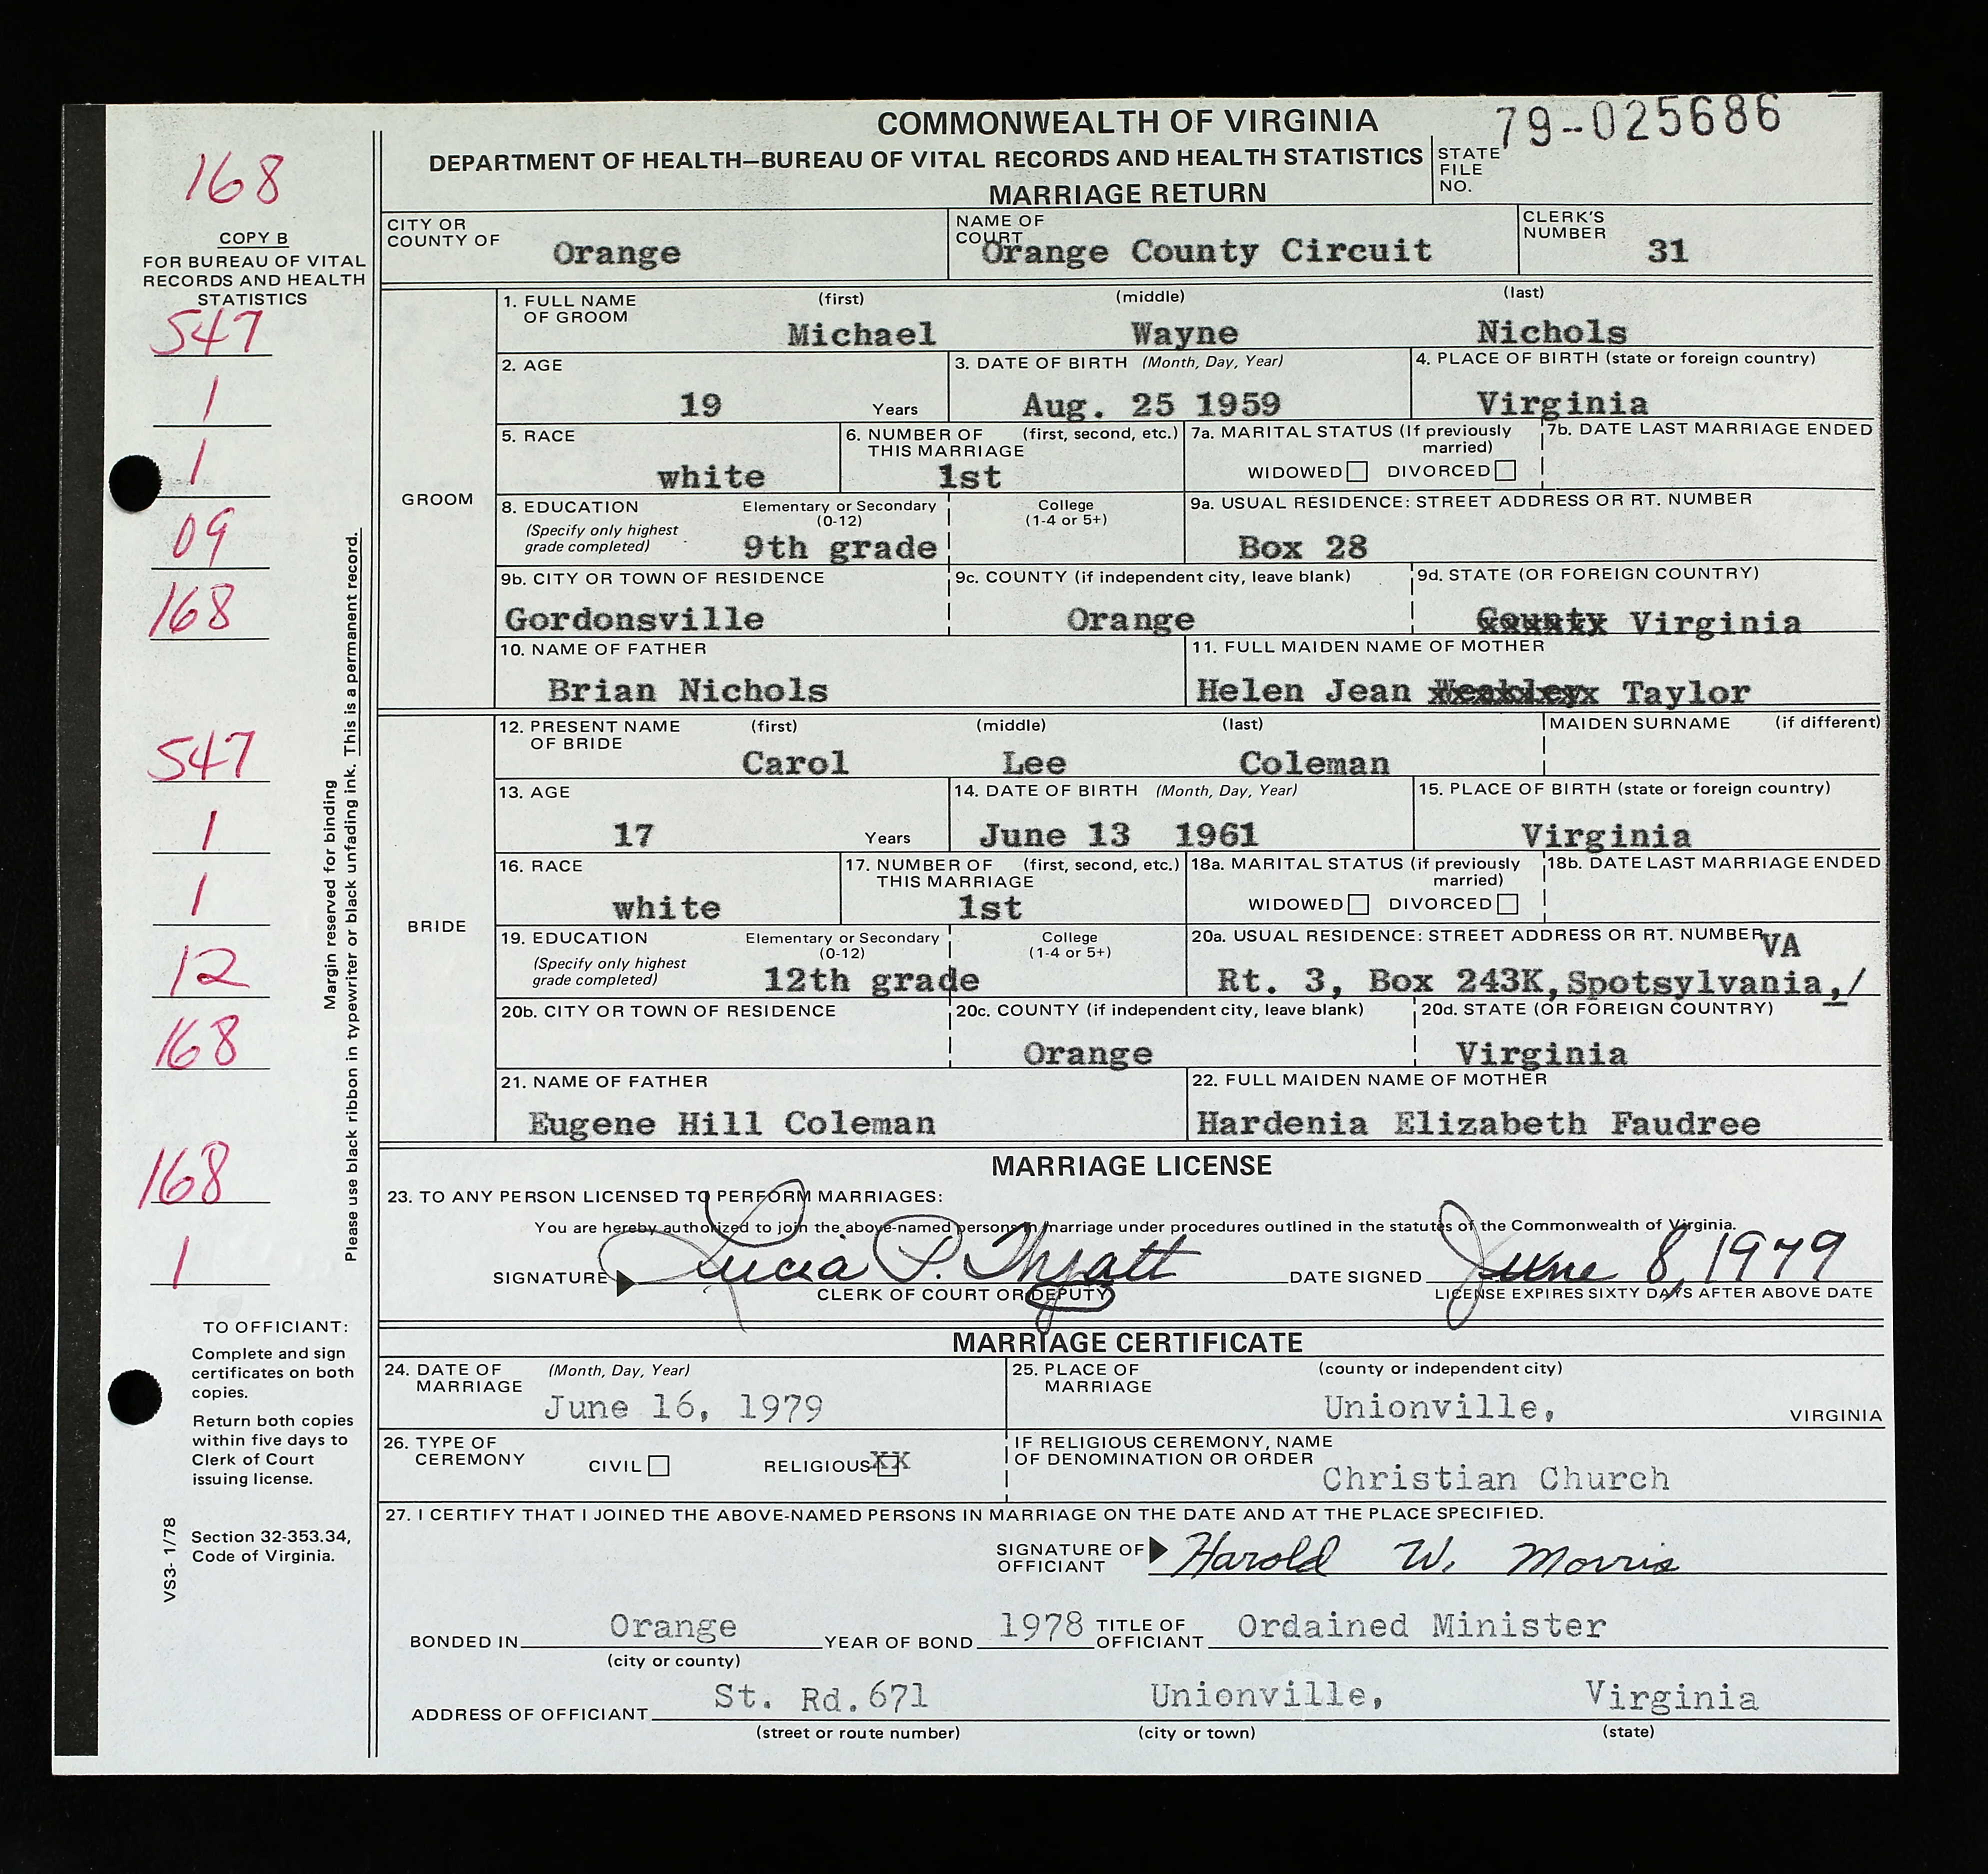 COMMONWEALTH OF VIRGINIA
79-025686
DEPARTMENT OF HEALTH—BUREAU OF VITAL RECORDS AND HEALTH STATISTICS
STATE FILE NO.
MARRIAGE RETURN
168
COPY B
FOR BUREAU OF VITAL
RECORDS AND HEALTH
STATISTICS
547
1
1
09
168
547
1
1
12
168
168
1
Margin reserved for binding
Please use black ribbon in typewriter or black unfading ink. This is a permanent record.
TO OFFICIANT:
Complete and sign
certificates on both
copies.
Return both copies
within five days to
Clerk of Court
issuing license.
Section 32-353.34,
Code of Virginia.
VS3- 1/78
CITY OR COUNTY OF Orange
NAME OF COURT Orange County Circuit
CLERK'S NUMBER 31
GROOM
1. FULL NAME OF GROOM (first) (middle) (last)
Michael Wayne Nichols
2. AGE 19 Years
3. DATE OF BIRTH (Month, Day, Year) Aug. 25 1959
4. PLACE OF BIRTH (state or foreign country) Virginia
5. RACE white
6. NUMBER OF THIS MARRIAGE (first, second, etc.) 1st
7a. MARITAL STATUS (If previously married) WIDOWED DIVORCED
7b. DATE LAST MARRIAGE ENDED
8. EDUCATION (Specify only highest grade completed) Elementary or Secondary (0-12) 9th grade College (1-4 or 5+)
9a. USUAL RESIDENCE: STREET ADDRESS OR RT. NUMBER Box 28
9b. CITY OR TOWN OF RESIDENCE Gordonsville
9c. COUNTY (if independent city, leave blank) Orange
9d. STATE (OR FOREIGN COUNTRY) County Virginia
10. NAME OF FATHER Brian Nichols
11. FULL MAIDEN NAME OF MOTHER Helen Jean Weakley Taylor
BRIDE
12. PRESENT NAME OF BRIDE (first) (middle) (last) MAIDEN SURNAME (if different)
Carol Lee Coleman
13. AGE 17 Years
14. DATE OF BIRTH (Month, Day, Year) June 13 1961
15. PLACE OF BIRTH (state or foreign country) Virginia
16. RACE white
17. NUMBER OF THIS MARRIAGE (first, second, etc.) 1st
18a. MARITAL STATUS (if previously married) WIDOWED DIVORCED
18b. DATE LAST MARRIAGE ENDED
19. EDUCATION (Specify only highest grade completed) Elementary or Secondary (0-12) 12th grade College (1-4 or 5+)
20a. USUAL RESIDENCE: STREET ADDRESS OR RT. NUMBER Rt. 3, Box 243K, Spotsylvania,/ VA
20b. CITY OR TOWN OF RESIDENCE
20c. COUNTY (if independent city, leave blank) Orange
20d. STATE (OR FOREIGN COUNTRY) Virginia
21. NAME OF FATHER Eugene Hill Coleman
22. FULL MAIDEN NAME OF MOTHER Hardenia Elizabeth Faudree
MARRIAGE LICENSE
23. TO ANY PERSON LICENSED TO PERFORM MARRIAGES:
You are hereby authorized to join the above-named persons in marriage under procedures outlined in the statutes of the Commonwealth of Virginia.
SIGNATURE Lucia P. DATE SIGNED June 8, 1979
CLERK OF COURT OR DEPUTY LICENSE EXPIRES SIXTY DAYS AFTER ABOVE DATE
MARRIAGE CERTIFICATE
24. DATE OF MARRIAGE (Month, Day, Year) June 16, 1979
25. PLACE OF MARRIAGE (county or independent city) Unionville, VIRGINIA
26. TYPE OF CEREMONY CIVIL RELIGIOUS XX
IF RELIGIOUS CEREMONY, NAME OF DENOMINATION OR ORDER Christian Church
27. I CERTIFY THAT I JOINED THE ABOVE-NAMED PERSONS IN MARRIAGE ON THE DATE AND AT THE PLACE SPECIFIED.
SIGNATURE OF OFFICIANT Harold W. Morris
BONDED IN Orange YEAR OF BOND 1978 TITLE OF OFFICIANT Ordained Minister
(city or county)
ADDRESS OF OFFICIANT St. Rd. 671 Unionville, Virginia
(street or route number) (city or town) (state)